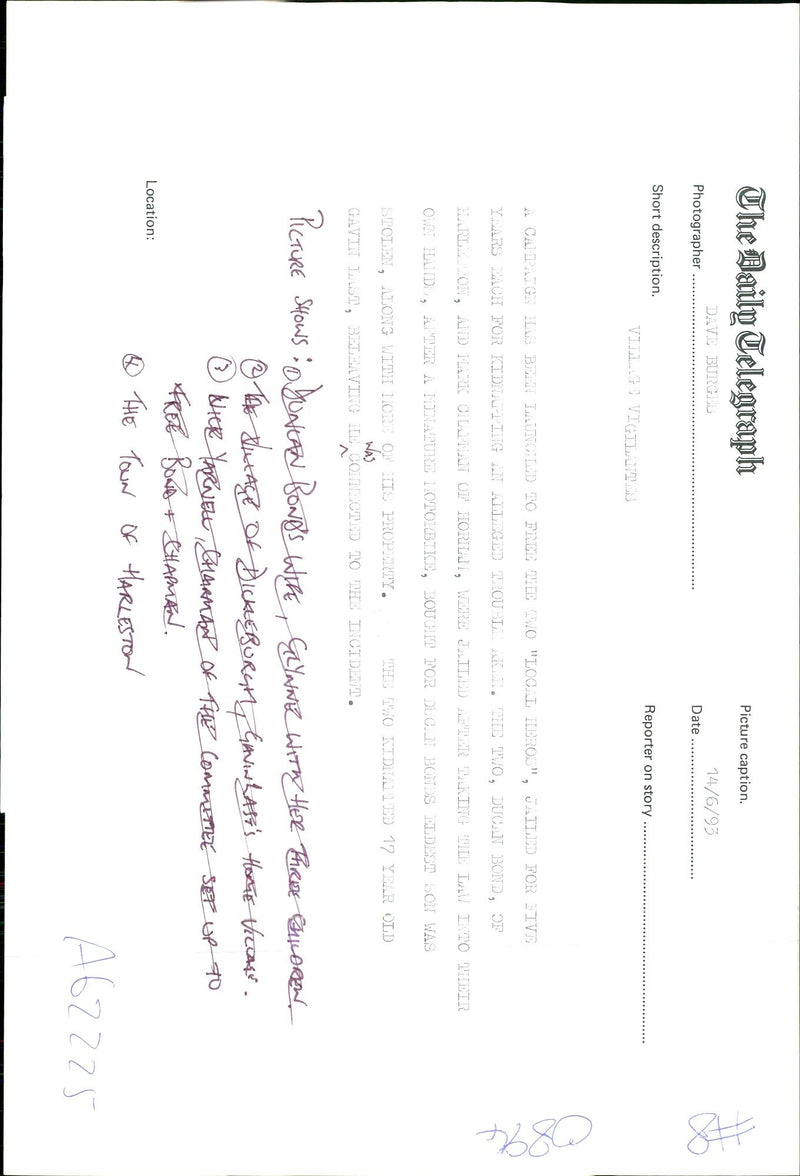 The Daily Telegraph
Picture caption.
Photographer DAVE BURGES
Date 14/6/93
Short description.
Reporter on story
VILLAGE VIGILANTES
A CAMPAIGN HAS BEEN LAUNCHED TO FREE THE TWO "LOCAL HEROS", JAILED FOR FIVE
YEARS EACH FOR KIDNAPPING AN ALLEGED TROUBLE MAKER. THE TWO, DUCAN BOND, OF
HARLESTON, AND MARK CHAPMAN OF HORHAM, WERE JAILED AFTER TAKING THE LAW INTO THEIR
OWN HANDS, AFTER A MINATURE MOTORBIKE, BOUGHT FOR DUCAN BONDS ELDEST SON WAS
STOLEN, ALONG WITH MORE OF HIS PROPERTY. THE TWO KIDNAPPED 17 YEAR OLD
GAVIN LAST, BELEAVING HE WAS CONNECTED TO THE INCIDENT.
PICTURE SHOWS: ① DUNCAN BOND'S WIFE, GLYNNE WITH HER THREE CHILDREN.
② THE VILLAGE OF DICKLEBURGH, GAVIN LAST'S HOME VILLAGE.
③ NICK YARNELL, CHAIRMAN OF THE COMMITTEE SET UP TO
FREE BOND + CHAPMAN.
④ THE TOWN OF HARLESTON
Location:
A62225
#8